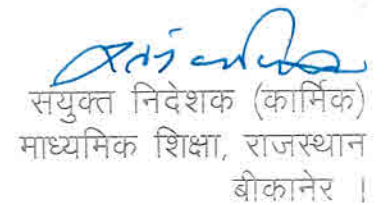 सयुक्त निदेशक (कार्मिक)
माध्यमिक शिक्षा, राजस्थान
बीकानेर ।